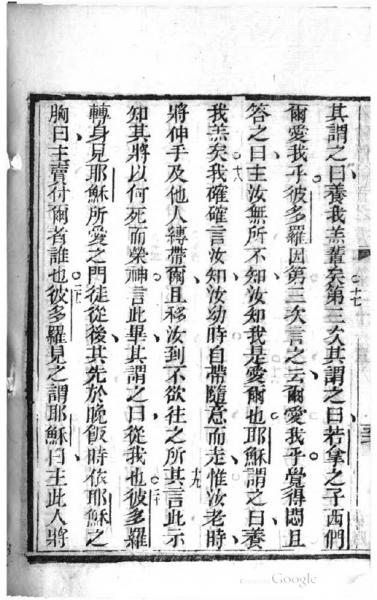 其謂之曰養我羔輩矣第三次其謂之曰若拿之子西們
十七
爾愛我乎彼多羅因第三次言之云爾愛我乎覺得悶且
答之曰主汝無所不知汝知我是愛爾也耶穌謂之曰養
我羔矣我確確言汝知汝幼時自帶隨意而走惟汝老時
十八
將伸手及他人縛帶爾且移汝到不欲往之所其言此示
十九
知其將以何死而榮神言此畢其謂之曰從我也彼多羅
二十
轉身見耶穌所愛之門徒從後其先於晚飯時依耶穌之
胸曰主賣付爾者誰也彼多羅見之謂耶穌曰主此人將
二一
Google